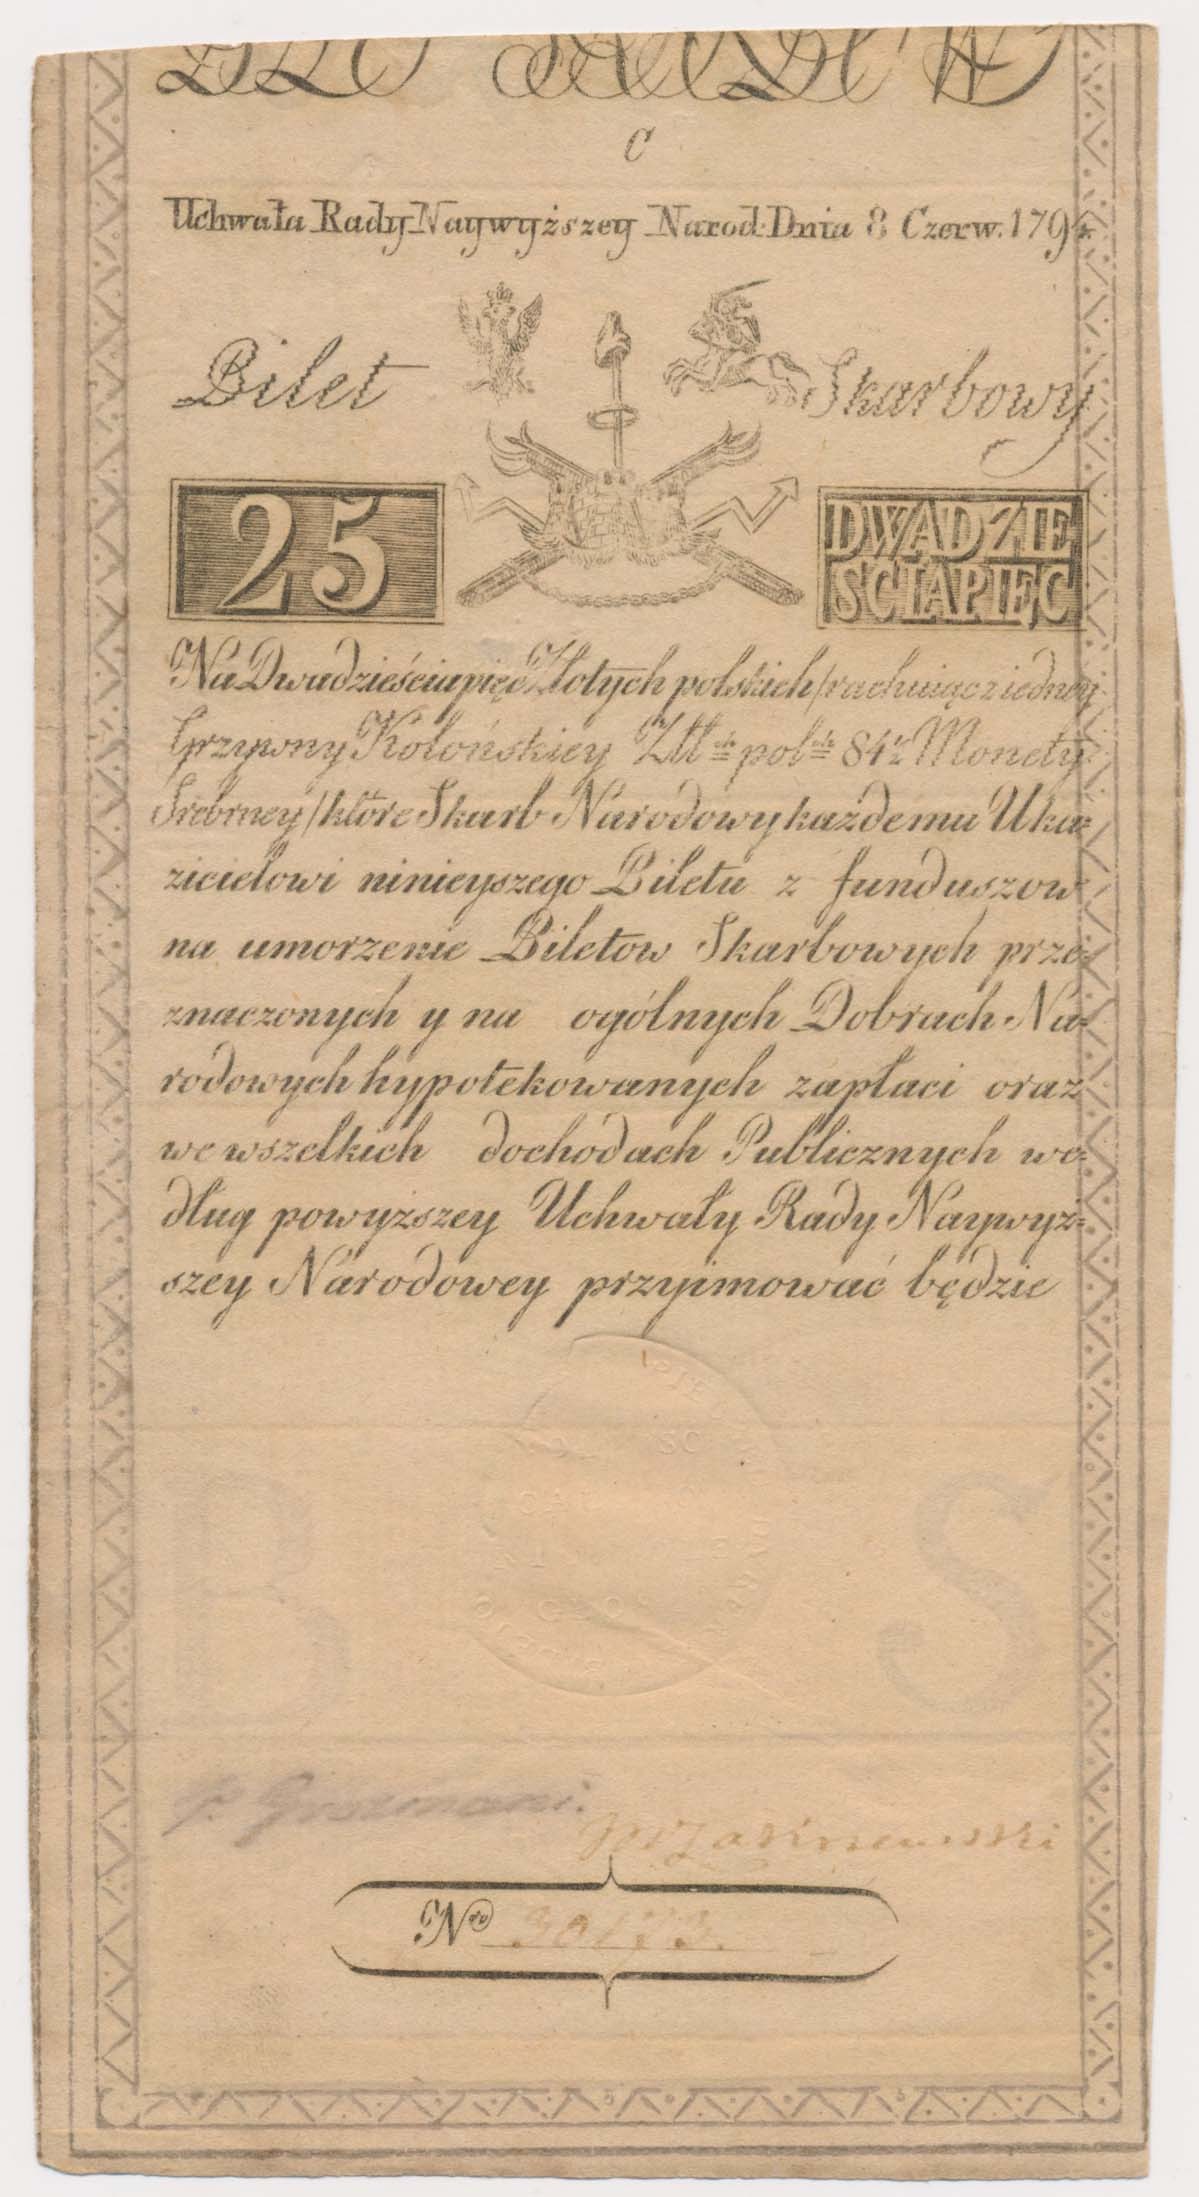 C
Uchwała Rady Naywyższey Narod: Dnia 8 Czerw. 1794.
Bilet Skarbowy
25
DWADZIE
SCIAPIĘC
Na Dwadzieściapięć Złotych polskich /rachuiąc z iedney
Grzywny Kolońskiey Złł ch pol ch 84½ Monety
Srebrney/ które Skarb Narodowy każdemu Uka=
zicielowi ninieyszego Biletu z funduszow
na umorzenie Biletow Skarbowych prze=
znaczonych y na ogólnych Dobrach Na=
rodowych hypotekowanych zapłaci oraz
we wszelkich dochodach Publicznych we=
dług powyzszey Uchwały Rady Naywyz=
szey Narodowey przyjmować będzie
B S
No